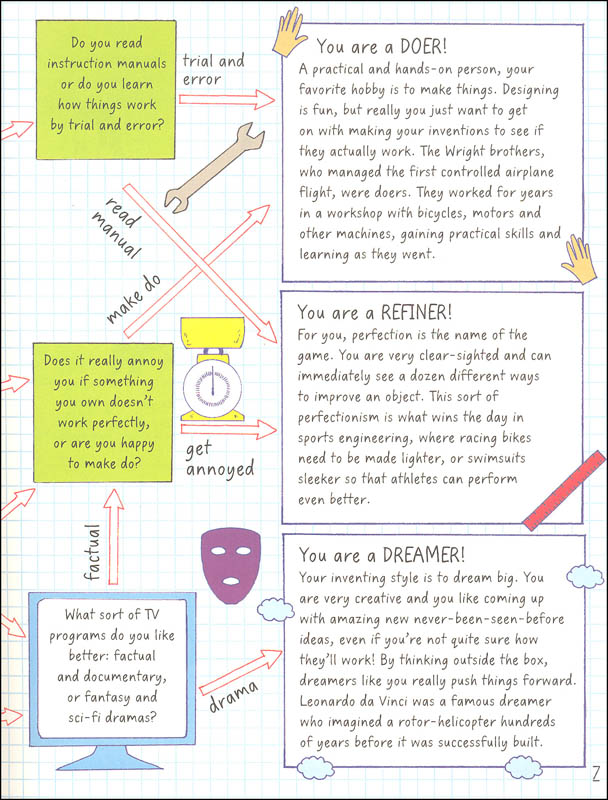 Do you read
instruction manuals
or do you learn
how things work
by trial and error?
trial and
error
You are a DOER!
A practical and hands-on person, your
favorite hobby is to make things. Designing
is fun, but really you just want to get
on with making your inventions to see if
they actually work. The Wright brothers,
who managed the first controlled airplane
flight, were doers. They worked for years
in a workshop with bicycles, motors and
other machines, gaining practical skills and
learning as they went.
read
manual
make do
Does it really annoy
you if something
you own doesn't
work perfectly,
or are you happy
to make do?
get
annoyed
You are a REFINER!
For you, perfection is the name of the
game. You are very clear-sighted and can
immediately see a dozen different ways
to improve an object. This sort of
perfectionism is what wins the day in
sports engineering, where racing bikes
need to be made lighter, or swimsuits
sleeker so that athletes can perform
even better.
factual
What sort of TV
programs do you like
better: factual
and documentary,
or fantasy and
sci-fi dramas?
drama
You are a DREAMER!
Your inventing style is to dream big. You
are very creative and you like coming up
with amazing new never-been-seen-before
ideas, even if you're not quite sure how
they'll work! By thinking outside the box,
dreamers like you really push things forward.
Leonardo da Vinci was a famous dreamer
who imagined a rotor-helicopter hundreds
of years before it was successfully built.
7